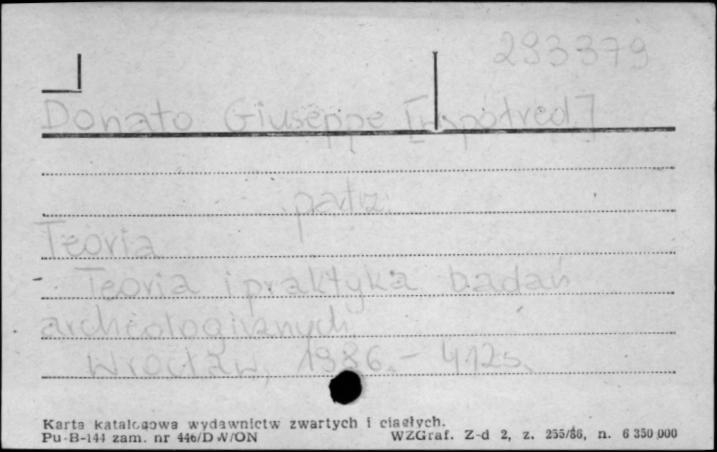 293379
Donato Giuseppe [współred.]
patrz:
Teoria
Teoria i praktyka badań
archeologicznych
Wrocław, 1986. - 412 s.
Karta katalogowa wydawnictw zwartych i ciągłych.
Pu-B-144 zam. nr 446/DW/ON WZGraf. Z-d 2, z. 255/86, n. 6 350 000